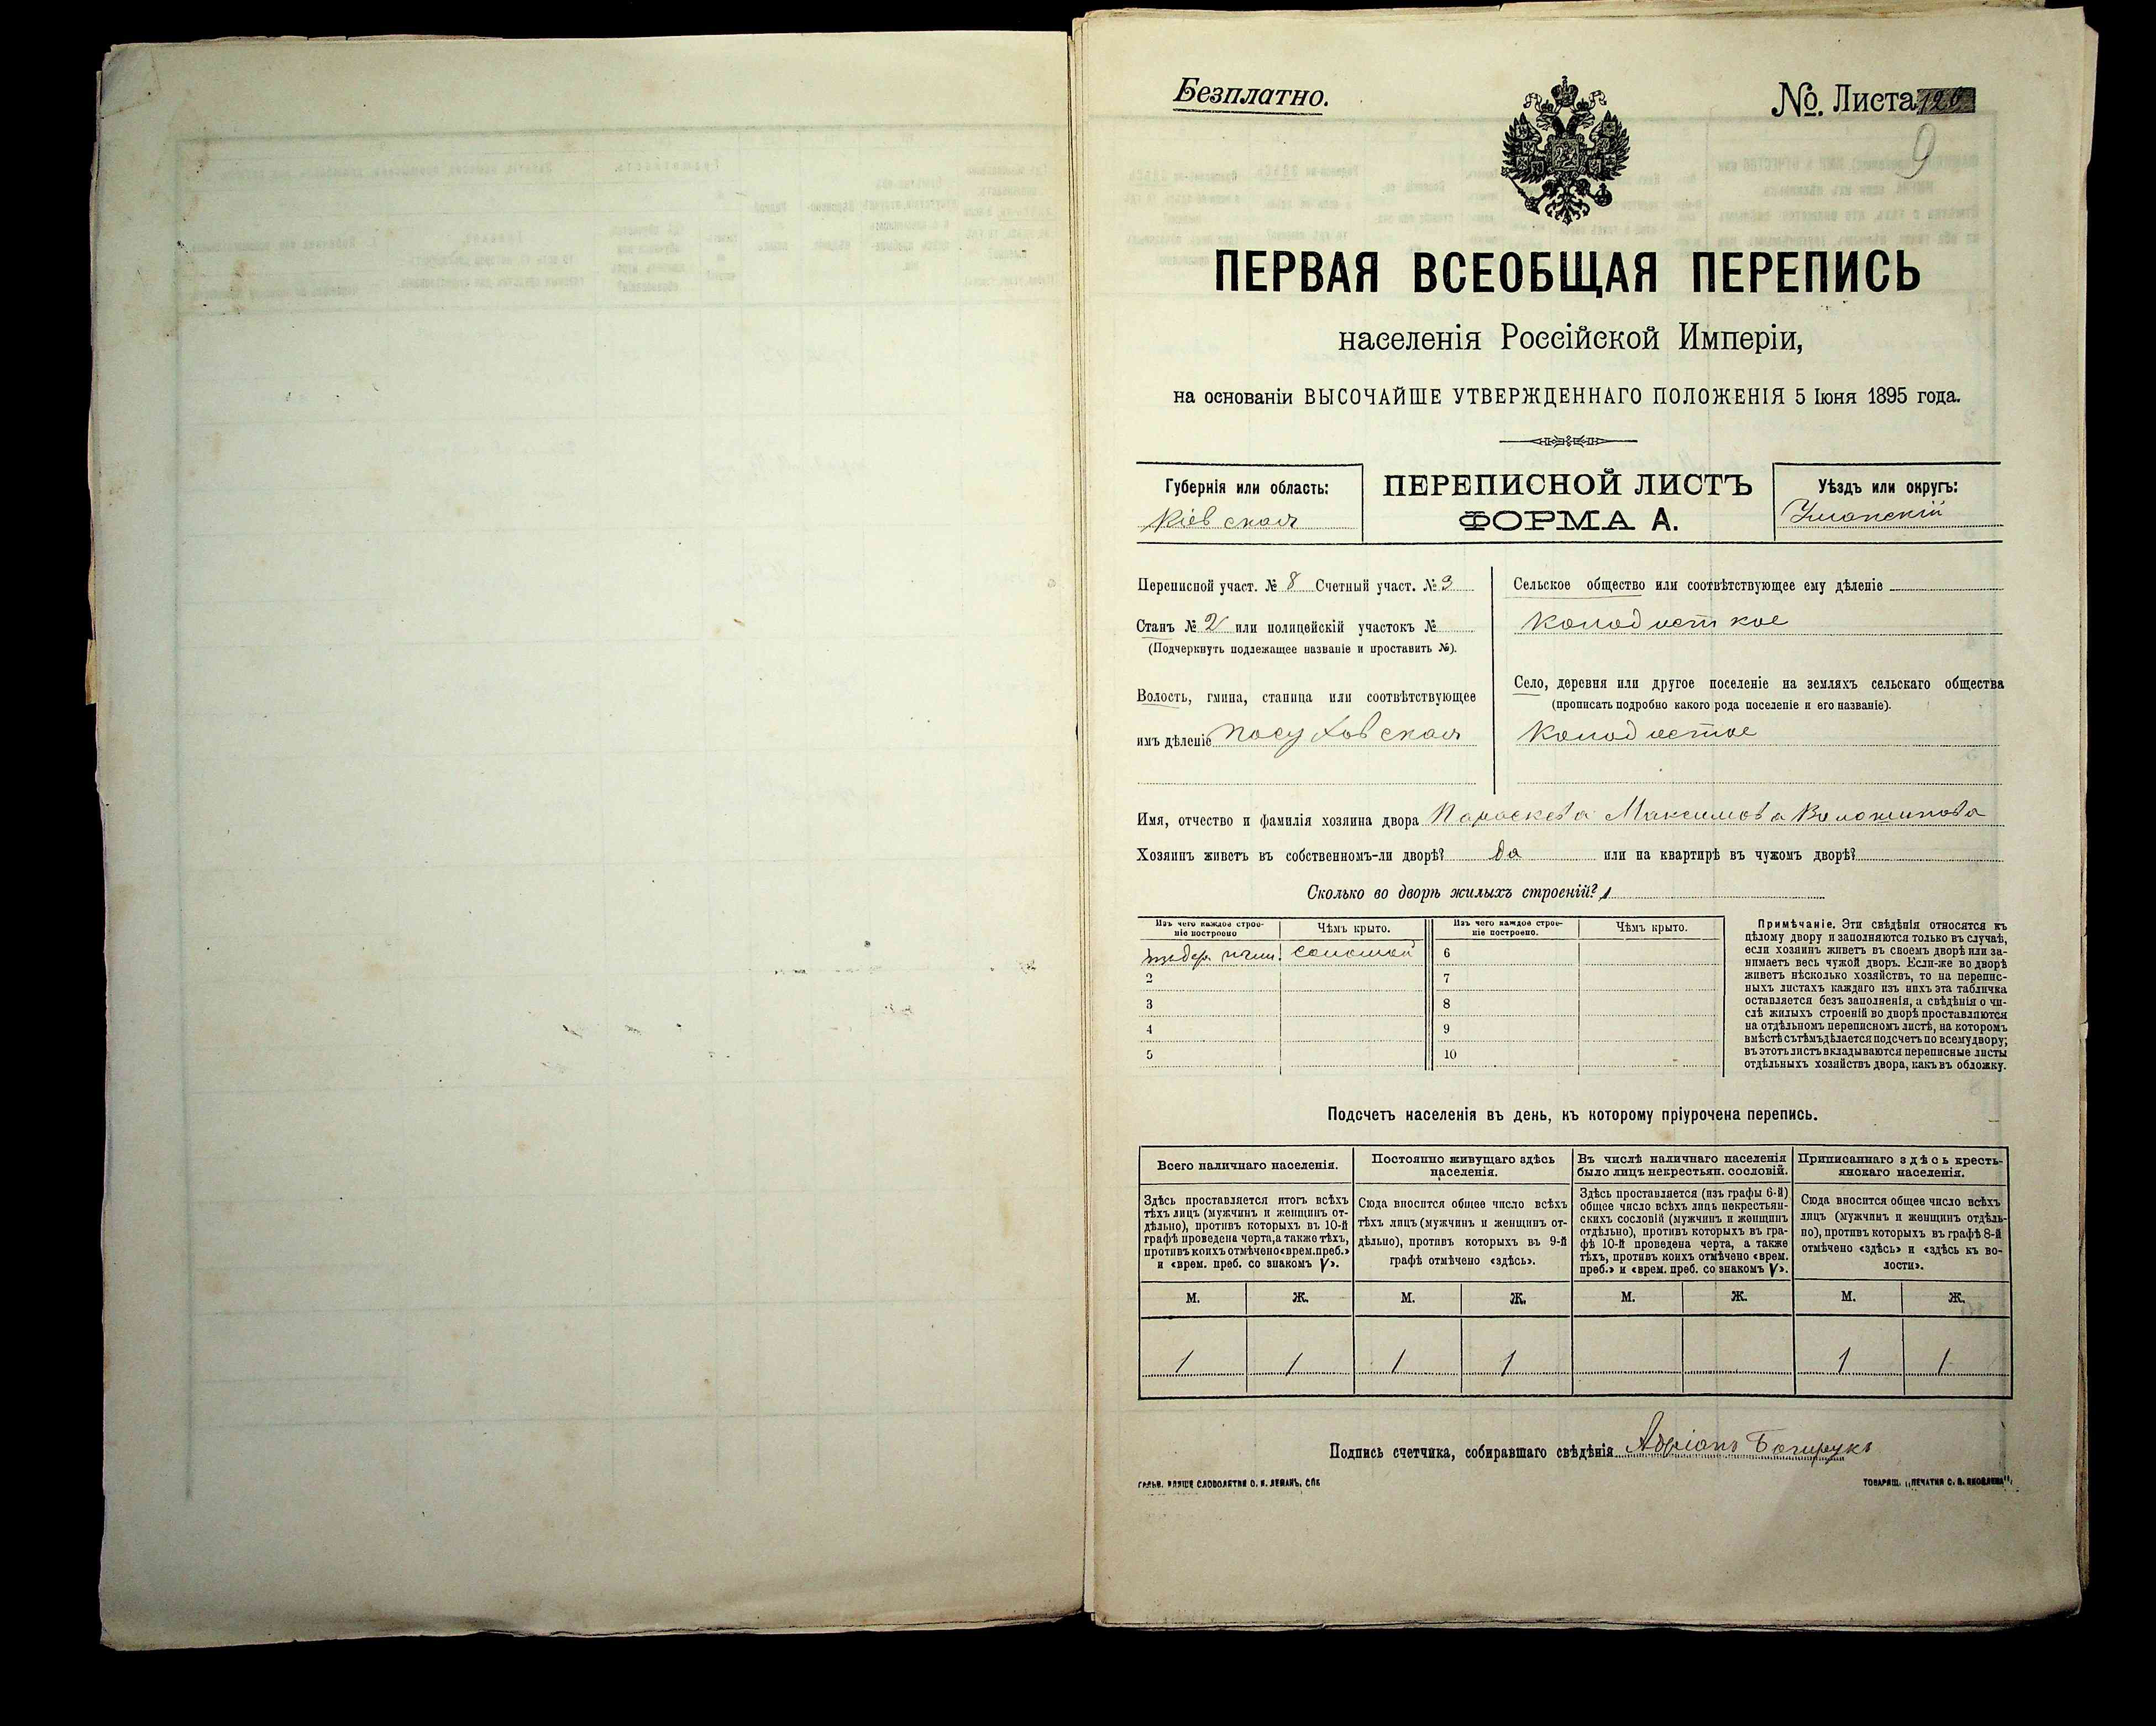 Безплатно.
№. Листа 120
9
ПЕРВАЯ ВСЕОБЩАЯ ПЕРЕПИСЬ
населенія Россійской Имперіи,
на основаніи ВЫСОЧАЙШЕ УТВЕРЖДЕННАГО ПОЛОЖЕНІЯ 5 Іюня 1895 года.
Губернія или область:
Кіевская
ПЕРЕПИСНОЙ ЛИСТЪ
ФОРМА А.
Уѣздъ или округъ:
Уманскій
Переписной участ. № 8 Счетный участ. № 3
Станъ № 2 или полицейскій участокъ №
(Подчеркнуть подлежащее названіе и проставить №).
Волость, гмина, станица или соотвѣтствующее
имъ дѣленіе Посуховская
Сельское общество или соотвѣтствующее ему дѣленіе
Колодисткое
Село, деревня или другое поселеніе на земляхъ сельскаго общества
(прописать подробно какого рода поселеніе и его названіе).
Колодистое
Имя, отчество и фамилія хозяина двора Параскева Максимова Волошинова
Хозяинъ живетъ въ собственномъ-ли дворѣ? да или на квартирѣ въ чужомъ дворѣ?
Сколько во дворѣ жилыхъ строеній? 1
Изъ чего каждое строе-
ніе построено
Чѣмъ крыто.
Изъ чего каждое строе-
ніе построено.
Чѣмъ крыто.
соломой 6
2 7
3 8
4 9
5 10
Примѣчаніе. Эти свѣдѣнія относятся къ
цѣлому двору и заполняются только въ случаѣ,
если хозяинъ живетъ въ своемъ дворѣ или за-
нимаетъ весь чужой дворъ. Если-же во дворѣ
живетъ нѣсколько хозяйствъ, то на перепис-
ныхъ листахъ каждаго изъ нихъ эта табличка
оставляется безъ заполненія, а свѣдѣнія о чи-
слѣ жилыхъ строеній во дворѣ проставляются
на отдѣльномъ переписномъ листѣ, на которомъ
вмѣстѣ съ тѣмъ дѣлается подсчетъ по всему двору;
въ этотъ листъ вкладываются переписные листы
отдѣльныхъ хозяйствъ двора, какъ въ обложку.
Подсчетъ населенія въ день, къ которому пріурочена перепись.
Всего наличнаго населенія.
Здѣсь проставляется итогъ всѣхъ
тѣхъ лицъ (мужчинъ и женщинъ от-
дѣльно), противъ которыхъ въ 10-й
графѣ проведена черта, а также тѣхъ,
противъ коихъ отмѣчено «врем. преб.»
и «врем. преб. со знакомъ V».
Постоянно живущаго здѣсь
населенія.
Сюда вносится общее число всѣхъ
тѣхъ лицъ (мужчинъ и женщинъ от-
дѣльно), противъ которыхъ въ 9-й
графѣ отмѣчено «здѣсь».
Въ числѣ наличнаго населенія
было лицъ некрестьян. сословій.
Здѣсь проставляется (изъ графы 6-й)
общее число всѣхъ лицъ некрестьян-
скихъ сословій (мужчинъ и женщинъ
отдѣльно), противъ которыхъ въ гра-
фѣ 10-й проведена черта, а также
тѣхъ, противъ коихъ отмѣчено «врем.
преб.» и «врем. преб. со знакомъ V».
Приписаннаго здѣсь кресть-
янскаго населенія.
Сюда вносится общее число всѣхъ
лицъ (мужчинъ и женщинъ отдѣль-
но), противъ которыхъ въ графѣ 8-й
отмѣчено «здѣсь» и «здѣсь къ во-
лости».
М. Ж. М. Ж. М. Ж. М. Ж.
1 1 1 1 1 1
Подпись счетчика, собиравшаго свѣдѣнія Адріанъ
ТОВАРИЩ. „ПЕЧАТНЯ С. П. ЯКОВЛЕВА“.